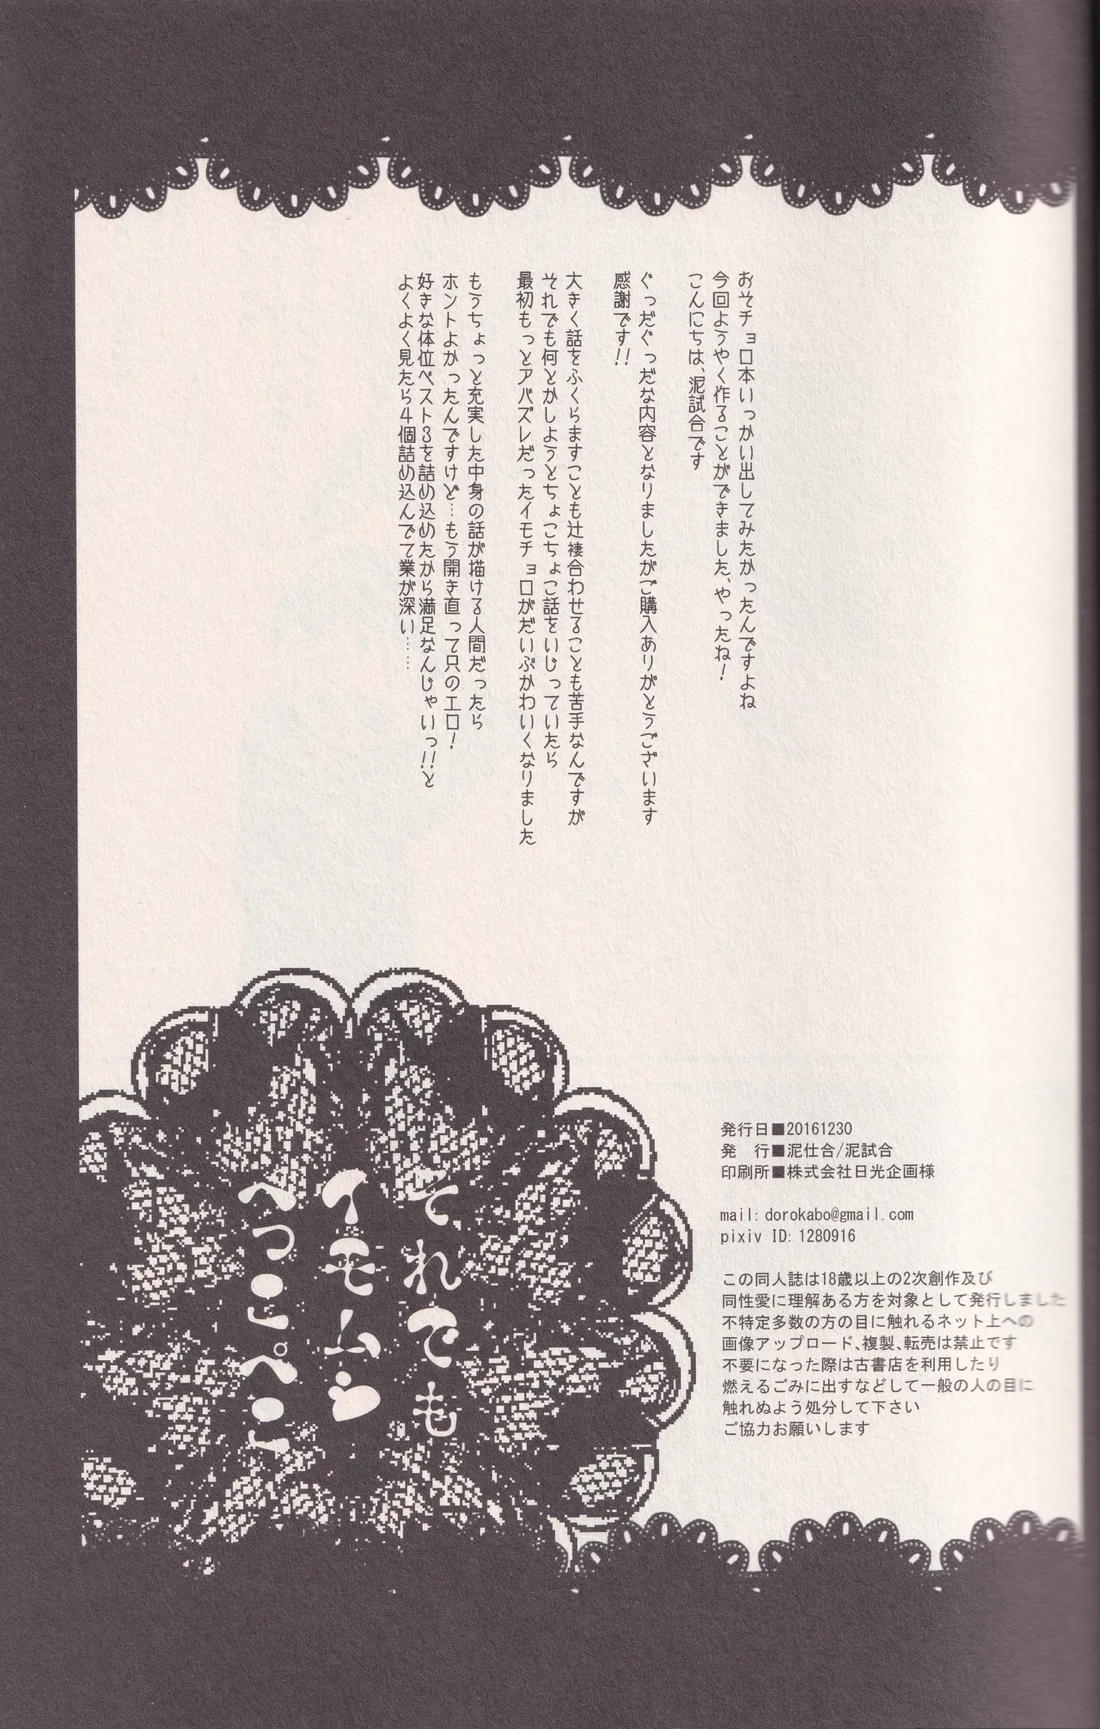 おそチョロ本いっかい出してみたかったんですよね
今回ようやく作ることができました、やったね！
こんにちは、泥試合です
ぐっだぐっだな内容となりましたがご購入ありがとうございます
感謝です!!
大きく話をふくらますことも辻褄合わせることも苦手なんですが
それでも何とかしようとちょこちょこ話をいじっていたら
最初もっとアバズレだったイモチョロがだいぶかわいくなりました
もうちょっと充実した中身の話が描ける人間だったら
ホントよかったんですけど…もう開き直って只のエロ！
好きな体位ベスト3を詰め込めたから満足なんじゃいっ!!と
よくよく見たら4個詰め込んでて業が深い……
それでも
イモムシ
へっこぺこ
発行日■20161230
発　行■泥仕合/泥試合
印刷所■株式会社日光企画様
mail: dorokabo@gmail.com
pixiv ID: 1280916
この同人誌は18歳以上の2次創作及び
同性愛に理解ある方を対象として発行しました
不特定多数の方の目に触れるネット上への
画像アップロード、複製、転売は禁止です
不要になった際は古書店を利用したり
燃えるごみに出すなどして一般の人の目に
触れぬよう処分して下さい
ご協力お願いします